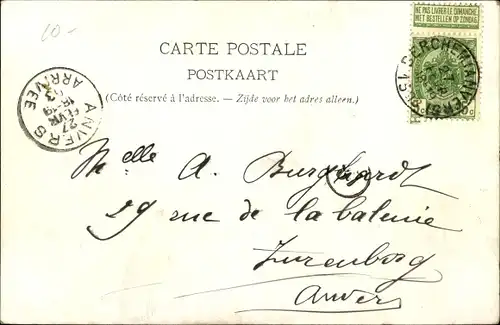 10-
NE PAS LIVRER LE DIMANCHE
NIET BESTELLEN OP ZONDAG
CARTE POSTALE
POSTKAART
(Côté réservé à l'adresse. — Zijde voor het adres alleen.)
ANVERS
ARRIVÉE
27
FEVR
BERCHEM (ANVERS)
Melle A. Burghardt
29 rue de la baleine
Zurenborg
Anvers